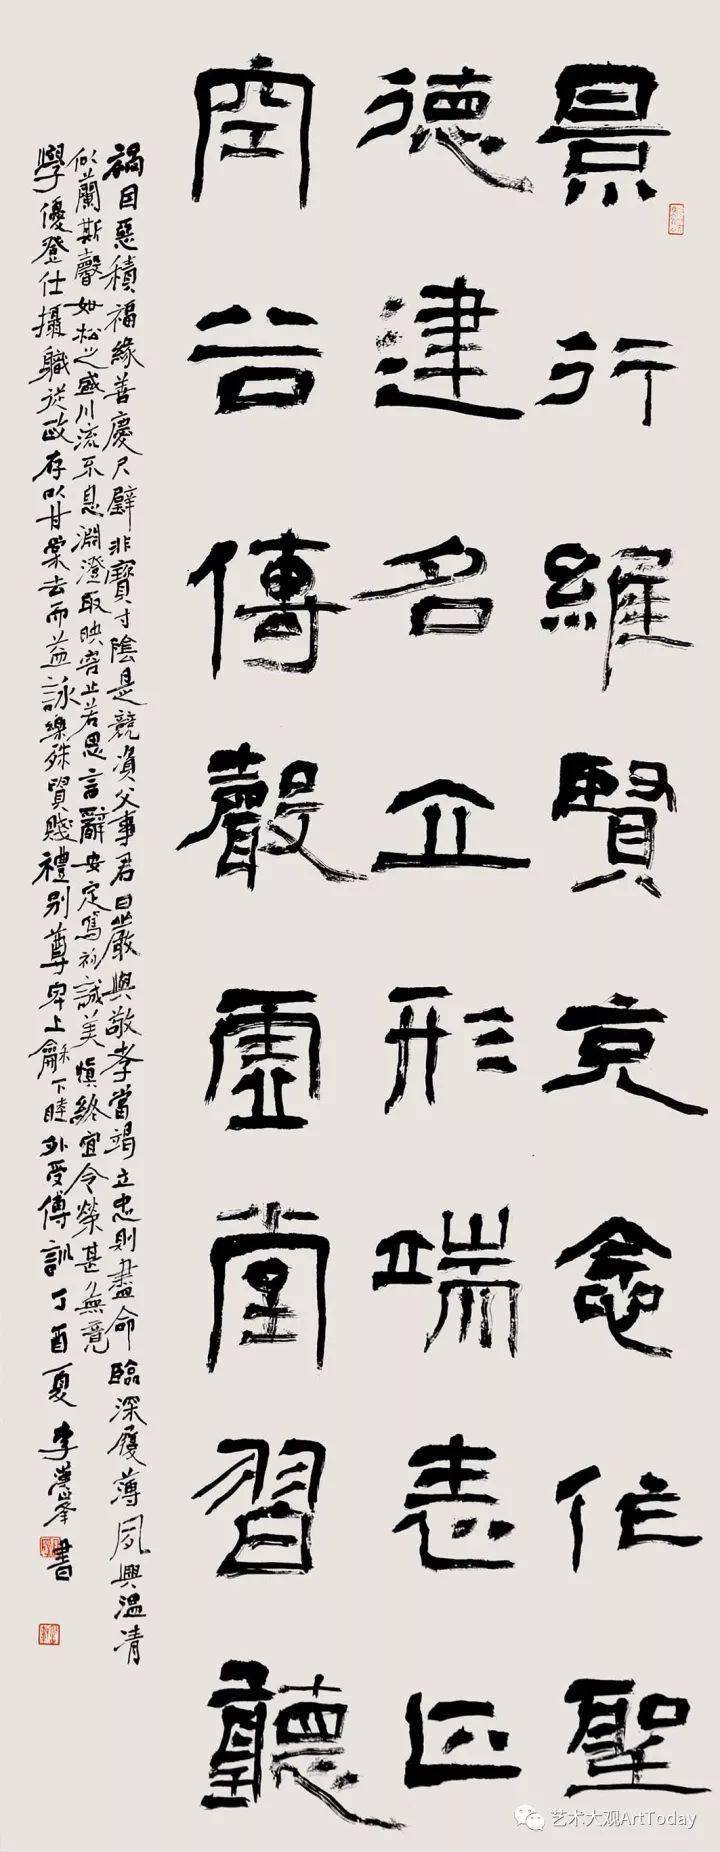 景行維賢克念作聖
德建名立形端表正
空谷傳聲虛堂習聽
禍因惡積福緣善慶尺璧非寶寸陰是競資父事君曰嚴與敬孝當竭立忠則盡命臨深履薄夙興溫凊
似蘭斯馨如松之盛川流不息淵澄取映容止若思言辭安定篤初誠美慎終宜令榮甚無竟
學優登仕攝職從政存以甘棠去而益詠樂殊貴賤禮別尊卑上龢下睦外受傅訓丁酉夏李峯書
艺术大观ArtToday